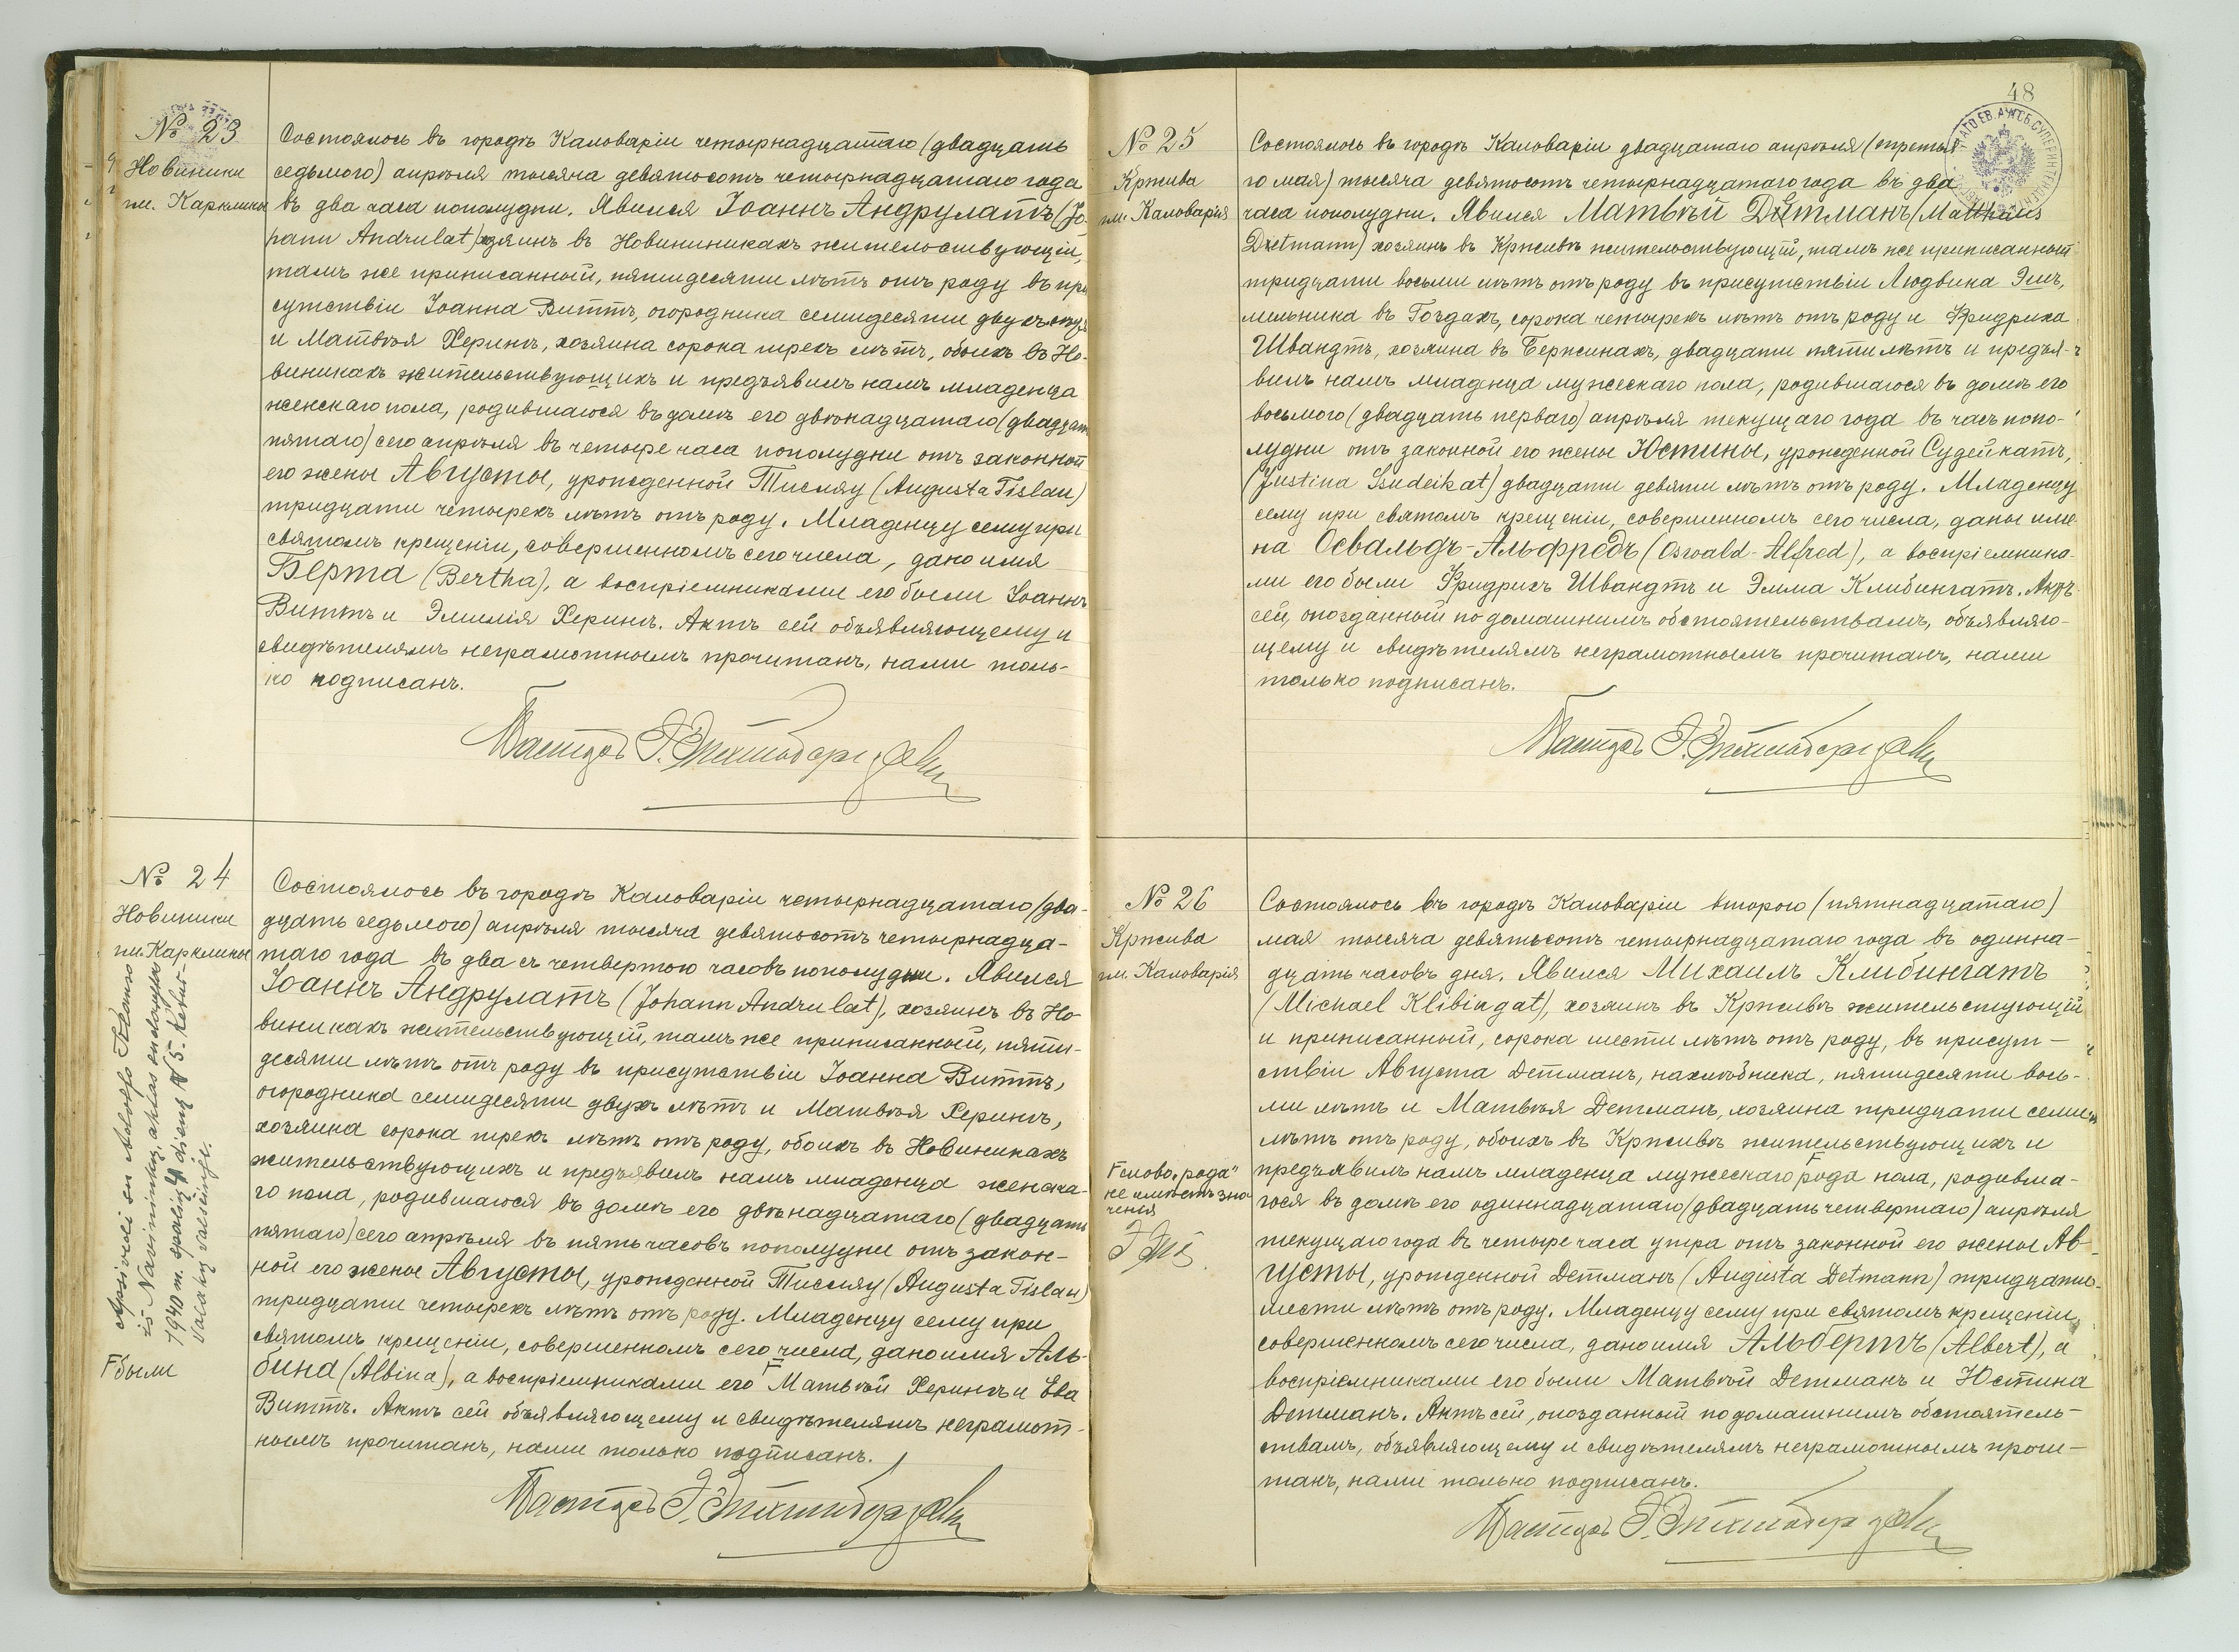 № 23
Новиники
гм. Карклины
Состоялось въ городѣ Каловаріи четырнадцатаго (двадцать
седьмого) апрѣля тысяча девятьсотъ четырнадцатаго года
въ два часа пополудни. Явился Іоаннъ Андрулатъ (Jo-
hann Andrulat) хозяинъ въ Новиникахъ жительствующій,
тамъ же приписанный, пятидесяти лѣтъ отъ роду въ при
сутствіи Іоанна Виттъ, огородника семидесяти двухъ
и Матвѣя Херингъ, хозяина сорока трехъ лѣтъ, обоихъ въ Но-
виникахъ жительствующихъ и предъявилъ намъ младенца
женскаго пола, родившагося въ домѣ его двѣнадцатаго (двадцать
пятаго) сего апрѣля въ четыре часа пополудни отъ законной
его жены Августы, урожденной Тислау (Augusta Tislau)
тридцати четырехъ лѣтъ отъ роду. Младенцу сему при
святомъ крещеніи, совершенномъ сего числа, дано имя
Берта (Bertha), а воспріемниками его были Іоаннъ
Виттъ и Эмилія Херингъ. Актъ сей объявляющему и
свидѣтелямъ неграмотнымъ прочитанъ, нами толь-
ко подписанъ.
Пасторъ
№ 24
Новиники
гм. Карклины
Состоялось въ городѣ Каловаріи четырнадцатаго (два-
дцать седьмого) апрѣля тысяча девятьсотъ четырнадца-
таго года въ два съ четвертью часовъ пополудни. Явился
Іоаннъ Андрулатъ (Johann Andrulat), хозяинъ въ Но
виникахъ жительствующій, тамъ же приписанный, пяти-
десяти лѣтъ отъ роду въ присутствіи Іоанна Виттъ,
огородника семидесяти двухъ лѣтъ и Матвѣя Херингъ,
хозяина сорока трехъ лѣтъ отъ роду, обоихъ въ Новиникахъ
жительствующихъ и предъявилъ намъ младенца женска-
го пола, родившагося въ домѣ его двѣнадцатаго (двадцать
пятаго) сего апрѣля въ пять часовъ пополудни отъ закон-
ной его жены Августы, урожденной Тислау (Augusta Tislau)
тридцати четырехъ лѣтъ отъ роду. Младенцу сему при
святомъ крещеніи, совершенномъ сего числа, дано имя Аль-
бина (Albina), а воспріемниками его Г Матвѣй Херингъ и Ева
Виттъ. Актъ сей объявляющему и свидѣтелямъ неграмот-
нымъ прочитанъ, нами только подписанъ.
Г были
Пасторъ
Apsivedi su Adolfo
iš Navininkų, aktas
1940 m. spalių 4 dieną № 5.
Valakų valsčiuje.
48
№ 25
Кржива
гм. Каловарія
Состоялось въ городѣ Каловаріи двадцатаго апрѣля (третья-
го мая) тысяча девятьсотъ четырнадцатаго года въ два
часа пополудни. Явился Матвѣй Детманъ (Matthäus
Detmann) хозяинъ въ Крживѣ жительствующій, тамъ же приписанный
тридцати восьми лѣтъ отъ роду въ присутствіи Людвига Эмъ,
мельника въ Гоздахъ, сорока четырехъ лѣтъ отъ роду и Фридриха
Швандтъ, хозяина въ Бержинахъ, двадцати пяти лѣтъ и предъя-
вилъ намъ младенца мужескаго пола, родившагося въ домѣ его
восьмого (двадцать перваго) апрѣля текущаго года въ часъ попо-
лудни отъ законной его жены Юстины, урожденной Судейкатъ,
(Justina Sudeikat) двадцати девяти лѣтъ отъ роду. Младенцу
сему при святомъ крещеніи, совершенномъ сего числа, даны име
на Освальдъ-Альфредъ (Oswald-Alfred), а воспріемника-
ми его были Фридрихъ Швандтъ и Эмма Клибингатъ. Актъ
сей, опозданный по домашнимъ обстоятельствамъ, объявляю-
щему и свидѣтелямъ неграмотнымъ прочитанъ, нами
только подписанъ.
Пасторъ
№ 26
Кржива
гм. Каловарія
Состоялось въ городѣ Каловаріи второго (пятнадцатаго)
мая тысяча девятьсотъ четырнадцатаго года въ одинна-
дцать часовъ дня. Явился Михаилъ Клибингатъ
(Michael Klibingat), хозяинъ въ Крживѣ жительстующій
и приписанный, сорока шести лѣтъ отъ роду, въ присут-
ствіи Августа Детманъ, нахлѣбника, пятидесяти вось-
ми лѣтъ и Матвѣя Детманъ, хозяина тридцати семи
лѣтъ отъ роду, обоихъ въ Крживѣ жительствующихъ и
предъявилъ намъ младенца мужескаго Г рода пола, родивша-
гося въ домѣ его одиннадцатаго (двадцать четвертаго) апрѣля
текущаго года въ четыре часа утра отъ законной его жены Ав-
густы, урожденной Детманъ (Augusta Detmann) тридцати
шести лѣтъ отъ роду. Младенцу сему при святомъ крещеніи,
совершенномъ сего числа, дано имя Альбертъ (Albert), а
воспріемниками его были Матвѣй Детманъ и Юстина
Детманъ. Актъ сей, опозданный по домашнимъ обстоятель-
ствамъ, объявляющему и свидѣтелямъ неграмотнымъ прочи-
танъ, нами только подписанъ.
Г слово „рода"
не имѣетъ зна
ченія
Пасторъ